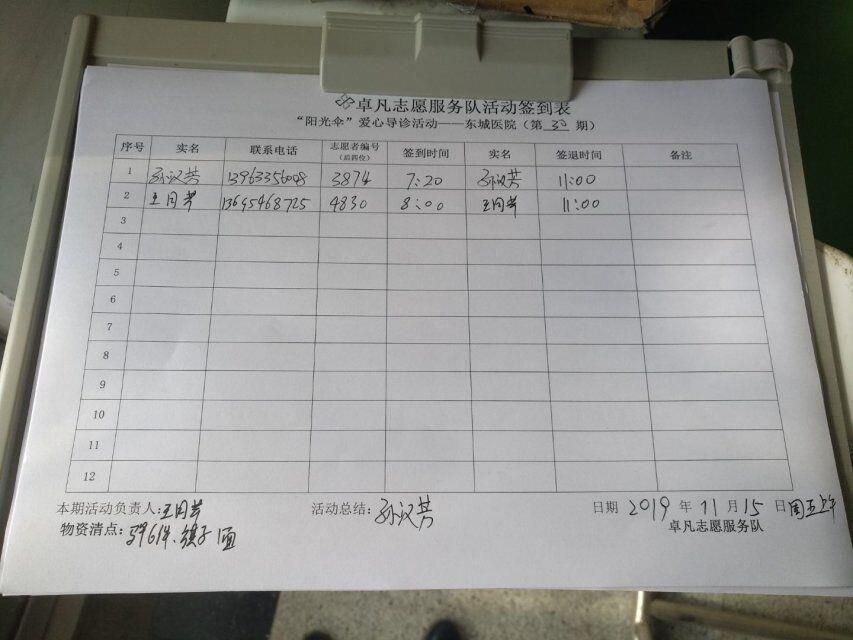 卓凡志愿服务队活动签到表
“阳光伞”爱心导诊活动——东城医院（第30期）
序号 实名 联系电话 志愿者编号（后四位） 签到时间 实名 签退时间 备注
1 孙汉芳 13963356098 3874 7:20 孙汉芳 11:00
2 13695468725 4830 8:00 11:00
3
4
5
6
7
8
9
10
11
12
本期活动负责人: 活动总结: 孙汉芳 日期 2019 年 11 月 15 日 周五上午
物资清点: 卓凡志愿服务队